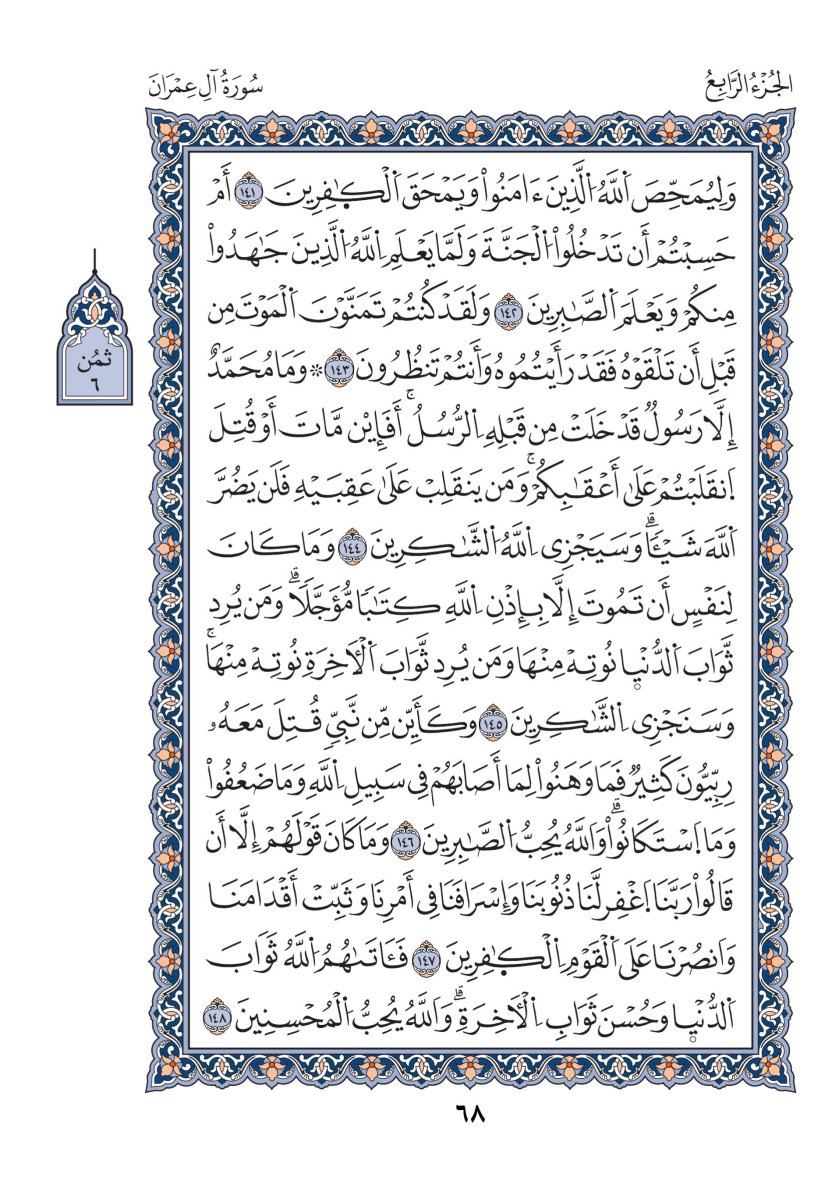 الجُزْءُ الرَّابِعُ
سُورَةُ آلِ عِمْرَانَ
وَلِيُمَحِّصَ ٱللَّهُ ٱلَّذِينَ ءَامَنُواْ وَيَمْحَقَ ٱلْكَٰفِرِينَ ١٤١ أَمْ
حَسِبْتُمْ أَن تَدْخُلُواْ ٱلْجَنَّةَ وَلَمَّا يَعْلَمِ ٱللَّهُ ٱلَّذِينَ جَٰهَدُواْ
مِنكُمْ وَيَعْلَمَ ٱلصَّٰبِرِينَ ١٤٢ وَلَقَدْ كُنتُمْ تَمَنَّوْنَ ٱلْمَوْتَ مِن
قَبْلِ أَن تَلْقَوْهُ فَقَدْ رَأَيْتُمُوهُ وَأَنتُمْ تَنظُرُونَ ١٤٣ ۞ وَمَا مُحَمَّدٌ
إِلَّا رَسُولٌ قَدْ خَلَتْ مِن قَبْلِهِ ٱلرُّسُلُ ۚ أَفَإِيْن مَّاتَ أَوْ قُتِلَ
ٱنقَلَبْتُمْ عَلَىٰ أَعْقَٰبِكُمْ ۚ وَمَن يَنقَلِبْ عَلَىٰ عَقِبَيْهِ فَلَن يَضُرَّ
ٱللَّهَ شَيْـًٔا ۗ وَسَيَجْزِي ٱللَّهُ ٱلشَّٰكِرِينَ ١٤٤ وَمَا كَانَ
لِنَفْسٍ أَن تَمُوتَ إِلَّا بِإِذْنِ ٱللَّهِ كِتَٰبًا مُّؤَجَّلًا ۗ وَمَن يُرِد
ثَّوَابَ ٱلدُّنْيَا نُوتِهْ مِنْهَا وَمَن يُرِد ثَّوَابَ ٱلْأَخِرَةِ نُوتِهْ مِنْهَا ۚ
وَسَنَجْزِي ٱلشَّٰكِرِينَ ١٤٥ وَكَأَيِّن مِّن نَّبِيٍّ قُتِلَ مَعَهُۥ
رِبِّيُّونَ كَثِيرٌ فَمَا وَهَنُواْ لِمَا أَصَابَهُمْ فِي سَبِيلِ ٱللَّهِ وَمَا ضَعُفُواْ
وَمَا ٱسْتَكَانُواْ ۗ وَٱللَّهُ يُحِبُّ ٱلصَّٰبِرِينَ ١٤٦ وَمَا كَانَ قَوْلَهُمْ إِلَّا أَن
قَالُواْ رَبَّنَا ٱغْفِر لَّنَا ذُنُوبَنَا وَإِسْرَافَنَا فِي أَمْرِنَا وَثَبِّتْ أَقْدَامَنَا
وَٱنصُرْنَا عَلَى ٱلْقَوْمِ ٱلْكَٰفِرِينَ ١٤٧ فَـَٔاتَىٰهُمُ ٱللَّهُ ثَوَابَ
ٱلدُّنْيَا وَحُسْنَ ثَوَابِ ٱلْأَخِرَةِ ۗ وَٱللَّهُ يُحِبُّ ٱلْمُحْسِنِينَ ١٤٨
ثُمُن
٦
٦٨